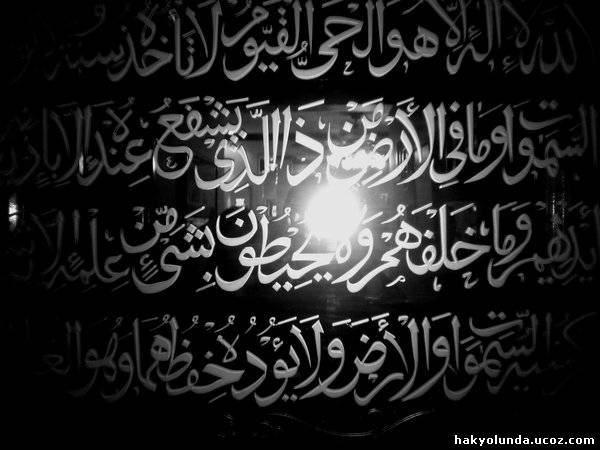 اللهُ لَا إِلٰهَ إِلَّا هُوَ الْحَىُّ الْقَيُّومُ لَا تَأْخُذُهُ سِنَةٌ
السَّمٰوَاتِ وَمَا فِى الْأَرْضِ مَنْ ذَا الَّذِى يَشْفَعُ عِنْدَهُ إِلَّا
أَيْدِيهِمْ وَمَا خَلْفَهُمْ وَلَا يُحِيطُونَ بِشَىْءٍ مِّنْ عِلْمِهِ إِلَّا
كُرْسِيُّهُ السَّمٰوَاتِ وَالْأَرْضَ وَلَا يَؤُدُهُ حِفْظُهُمَا وَهُوَ
hakyolunda.ucoz.com